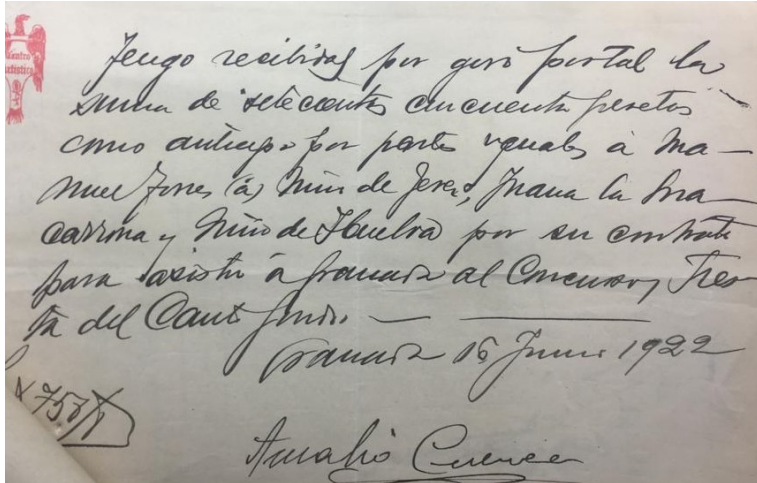 Centro
Artístico
Tengo recibidas por giro postal la
suma de setecientas cincuenta pesetas
como anticipo por partes iguales á Ma—
nuel Torres (a) Niño de Jerez, Juana la Ma
carrona y Niño de Huelva por su contrato
para asistir á Granada al Concurso y Fies
ta del Cante Jondo. — ———
Granada 16 Junio 1922
# 750 #
Amalio Cuenca